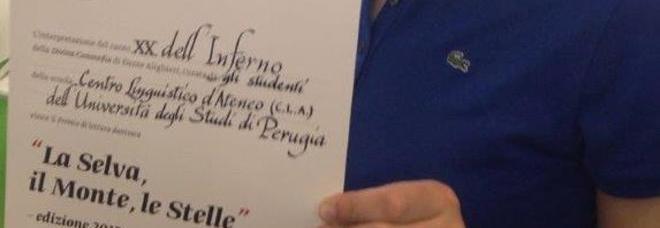 L'interpretazione del canto XX dell'Inferno
della Divina Commedia di Dante Alighieri, curata da gli studenti
della scuola Centro Linguistico d'Ateneo (C.L.A.)
dell'Università degli Studi di Perugia
vince il Premio di lettura dantesca
"La Selva,
il Monte, le Stelle"
- edizione